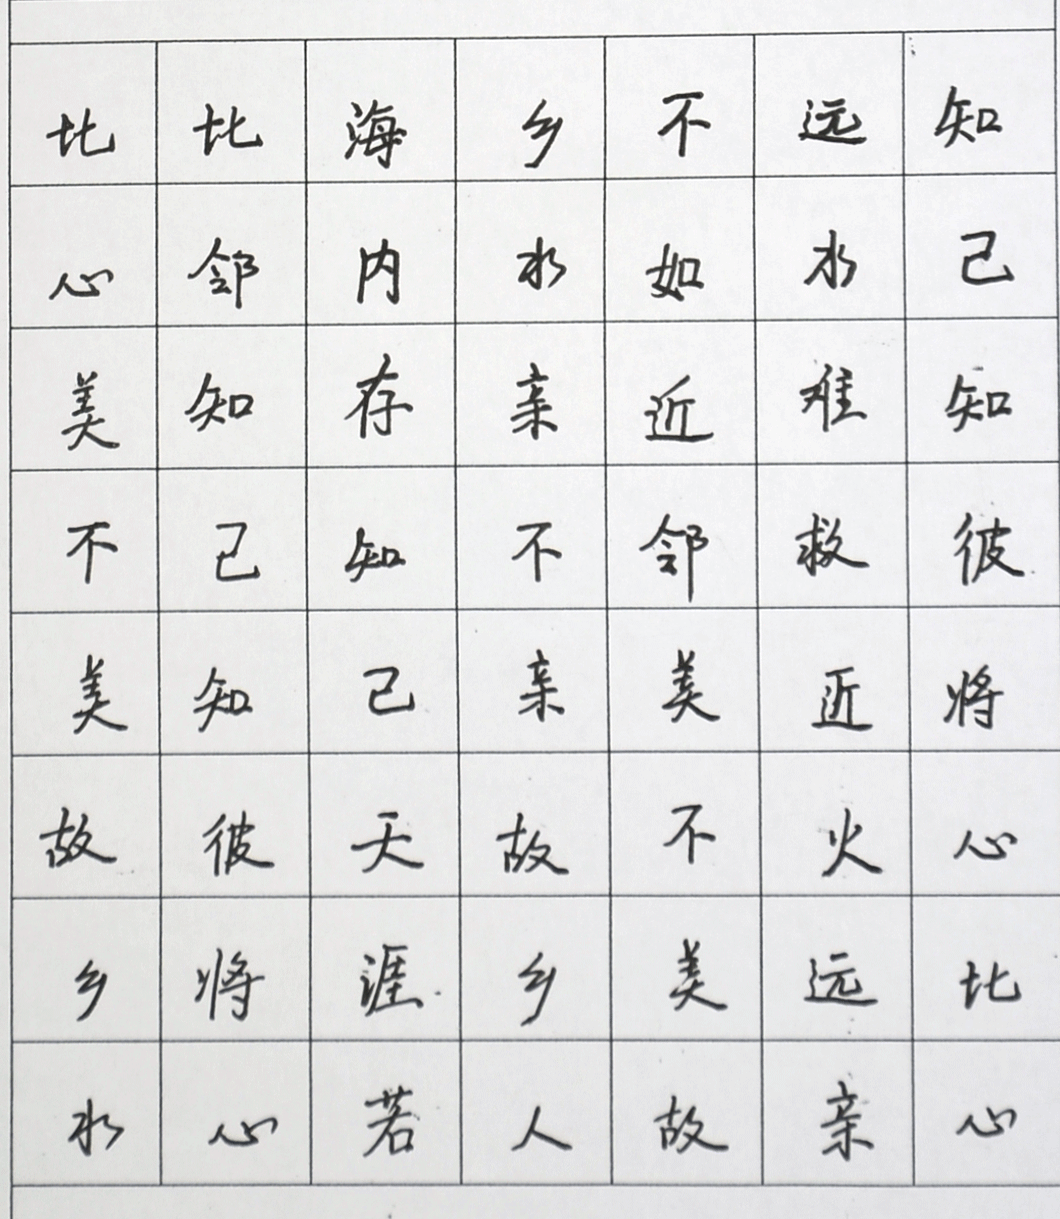 知己知彼将心比心
远水难救近火远亲
不如近邻美不美故
乡水亲不亲故乡人
海内存知己天涯若
比邻知己知彼将心
比心美不美故乡水